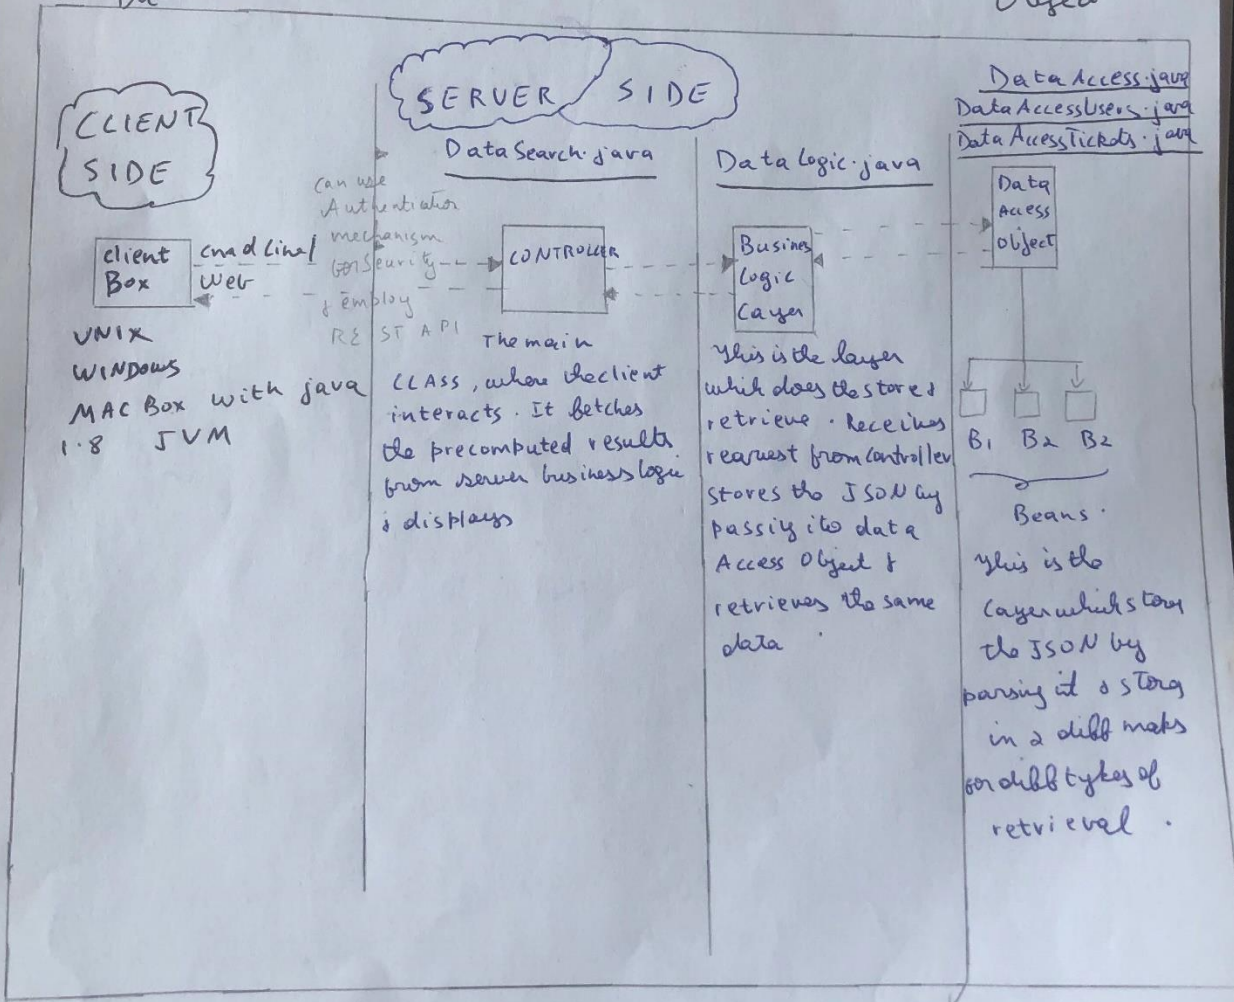 CLIENT
SIDE
client
Box
cmd Line/
Web
UNIX
WINDOWS
MAC Box with java
1.8 JVM
can use
Authentication
mechanism
for Seurity
& employ
REST API
SERVER SIDE
DataSearch.java
CONTROLLER
The main
CLASS, where the client
interacts. It fetches
the precomputed results
from server business logic
& displays
DataLogic.java
Busines
Logic
Layer
This is the layer
which does the store &
retrieve. Receives
request from controller
stores the JSON by
passing it to data
Access Object &
retrieves the same
data
Object
DataAccess.java
DataAccessUsers.java
DataAccessTickets.java
Data
Access
Object
B1 B2 B2
Beans.
This is the
layer which stores
the JSON by
parsing it & stores
in 2 diff maps
for diff types of
retrieval.